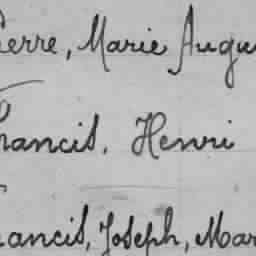 ierre, Marie Augu
rancis, Henri
rancis, Joseph, Mar